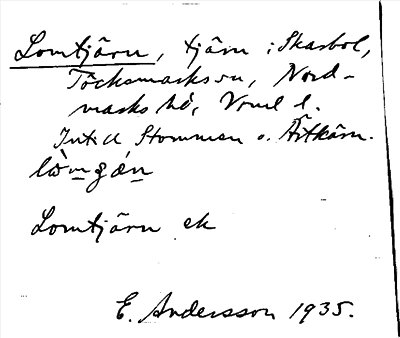 Lomtjärn, tjärn i Skarbol,
Töcksmarks sn, Nord-
marks hd, Vrml l.
Intill Stommen o. Ärtkärn.
Lomtjärn ek
E. Andersson 1935.